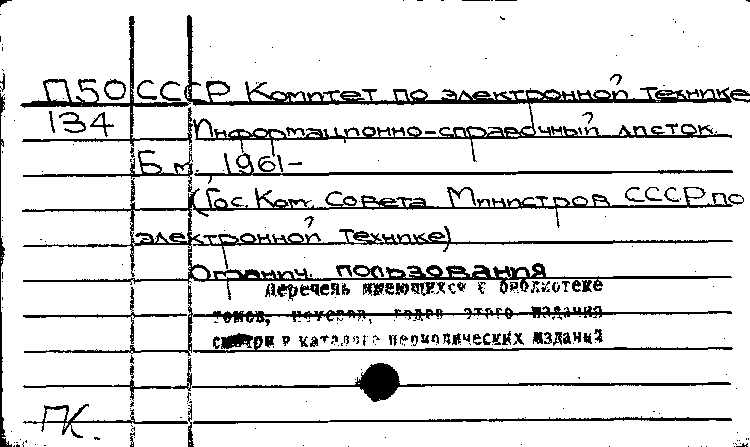 П50 СССР Комитет по электронной технике
134 Информационно-справочный листок.
Б.м., 1961-
(Гос. Ком. Совета Министров СССР по
электронной технике)
Огранич. пользования
перечень имеющихся в библиотеке
томов, номеров, годов этого издания
смотри в каталоге периодических изданий
ГК.